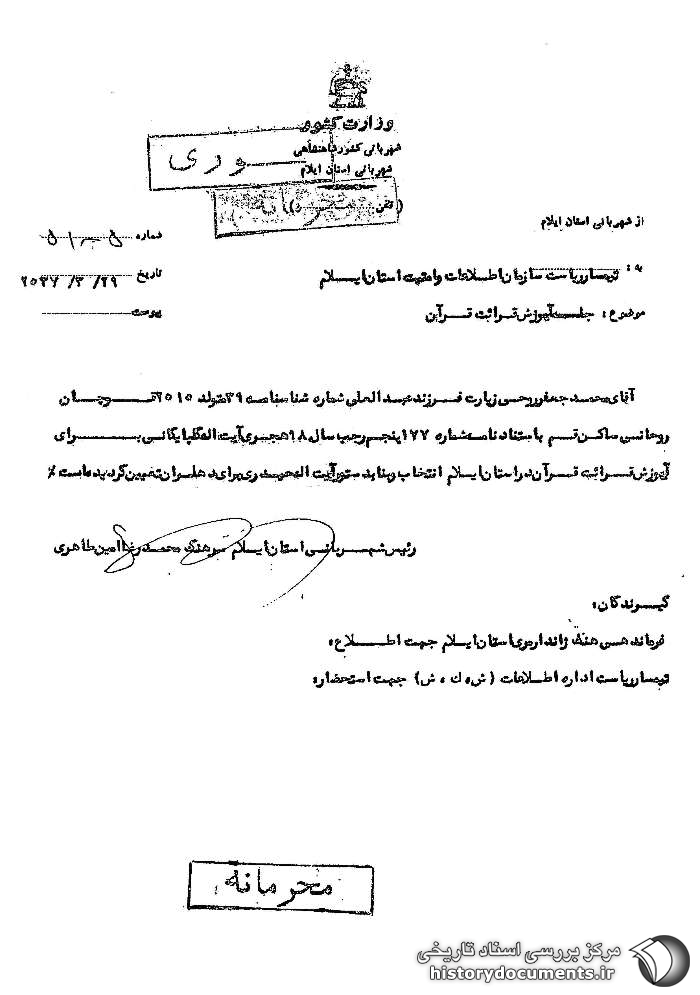 وزارت کشور
شهربانی کشور شاهنشاهی
شهربانی استان ایلام
وری
محرمانه
(تلفن
از شهربانی استان ایلام
شماره
به : تیمسار ریاست سازمان اطلاعات و امنیت استان ایلام
تاریخ ۲۵۳۷/۳/۲۹
موضوع : جلسه آموزش قرائت قرآن
پیوست
آقای محمد جعفر روحی زیارت فرزند عبدالعلی شماره شناسنامه ۳۹ متولد ۲۵۱۵ قوچان
روحانی ساکن قم باستناد نامه شماره ۱۷۷ پنجم رجب سال ۹۸ هجری آیت اله گلپایگانی برای
آموزش قرائت قرآن در استان ایلام انتخاب و بنا بدستور آیت اله حیدری برای دهلران تعیین گردیده است ٪
رئیس شهربانی استان ایلام سرهنگ محمد رضا امین طاهری
گیرندگان :
فرمانده هنگ ژاندارمری استان ایلام جهت اطلاع .
تیمسار ریاست اداره اطلاعات ( ش . ک . ش ) جهت استحضار .
محرمانه
مرکز بررسی اسناد تاریخی
historydocuments.ir